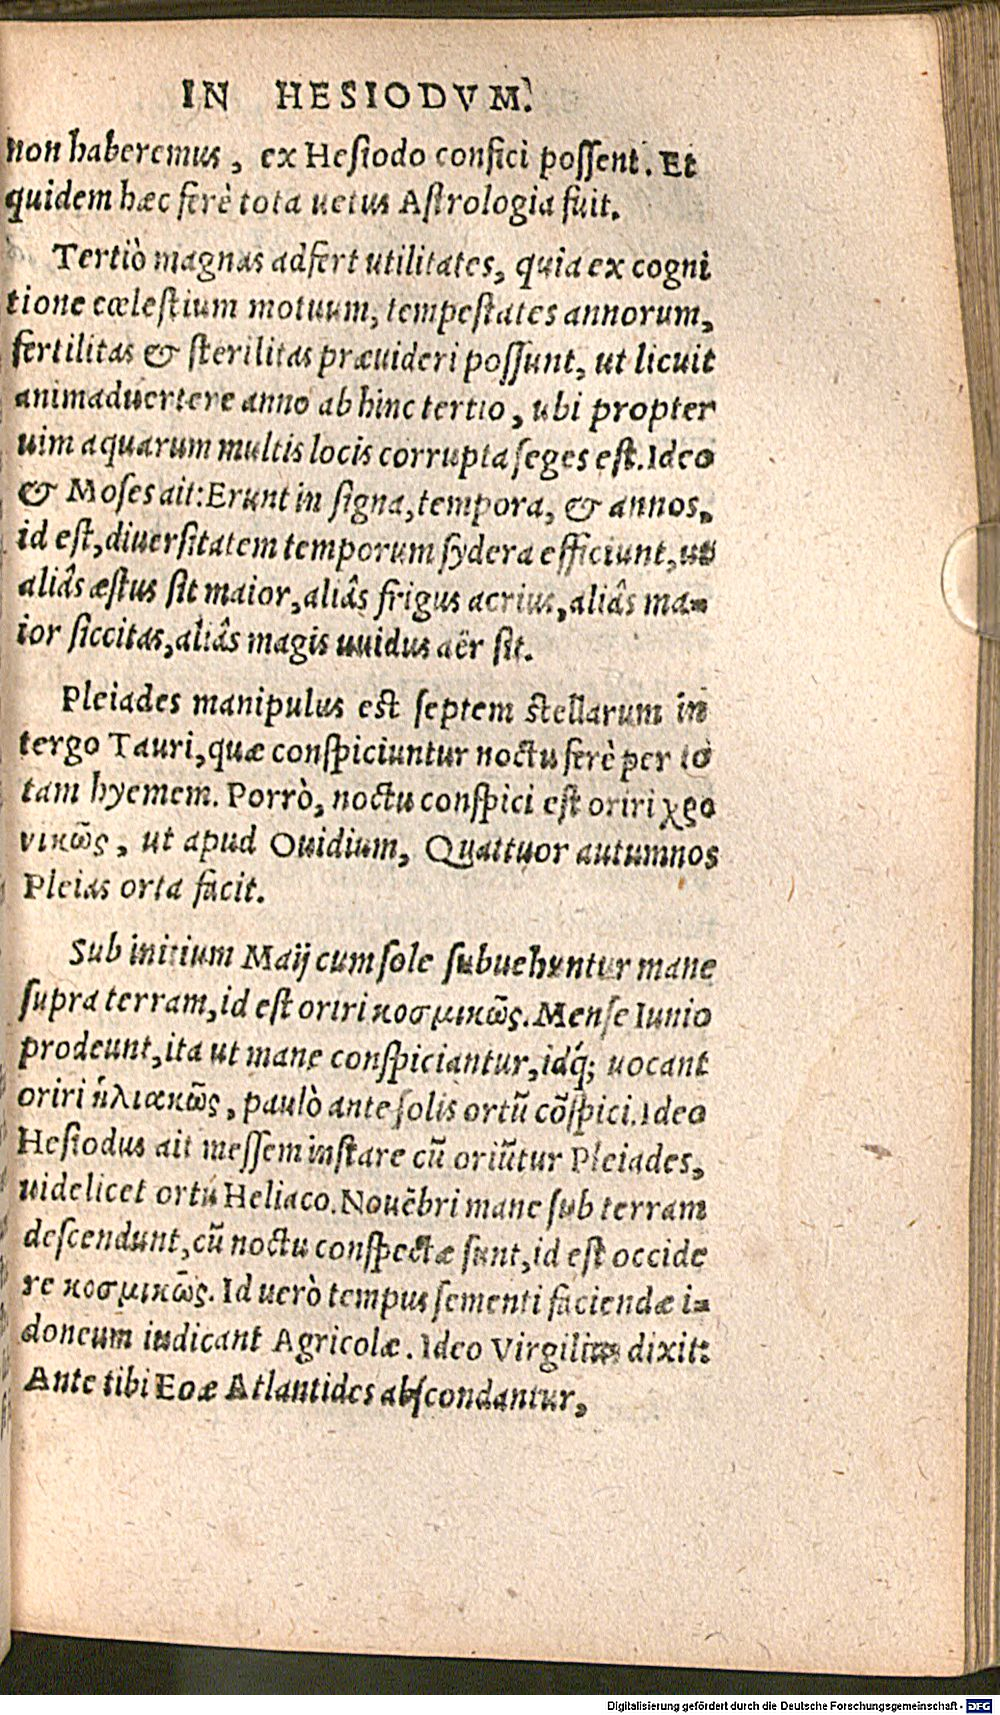 IN HESIODVM.
non haberemus, ex Hesiodo confici possent. Et
quidem hæc ferè tota uetus Astrologia fuit.
Tertiò magnas adfert utilitates, quia ex cogni
tione cœlestium motuum, tempestates annorum,
fertilitas & sterilitas præuideri possunt, ut licuit
animaduertere anno ab hinc tertio, ubi propter
uim aquarum multis locis corrupta seges est. Ideo
& Moses ait: Erunt in signa, tempora, & annos,
id est, diuersitatem temporum sydera efficiunt, ut
aliâs æstus sit maior, aliâs frigus acrius, aliâs ma-
ior siccitas, aliâs magis uuidus aër sit.
Pleiades manipulus est septem stellarum in
tergo Tauri, quæ conspiciuntur noctu ferè per to
tam hyemem. Porrò, noctu conspici est oriri χρο
νικῶς, ut apud Ouidium, Quattuor autumnos
Pleias orta facit.
Sub initium Maij cum sole subuehuntur mane
supra terram, id est oriri κοσμικῶς. Mense Iunio
prodeunt, ita ut mane conspiciantur, idq́; uocant
oriri ἡλιακῶς, paulò ante solis ortũ cõspici. Ideo
Hesiodus ait messem instare cũ oriũtur Pleiades,
uidelicet ortu Heliaco. Nouẽbri mane sub terram
descendunt, cũ noctu conspectæ sunt, id est occide
re κοσμικῶς. Id uerò tempus sementi faciendæ i-
doneum iudicant Agricolæ. Ideo Virgilius dixit:
Ante tibi Eoæ Atlantides abscondantur,
Digitalisierung gefördert durch die Deutsche Forschungsgemeinschaft - DFG